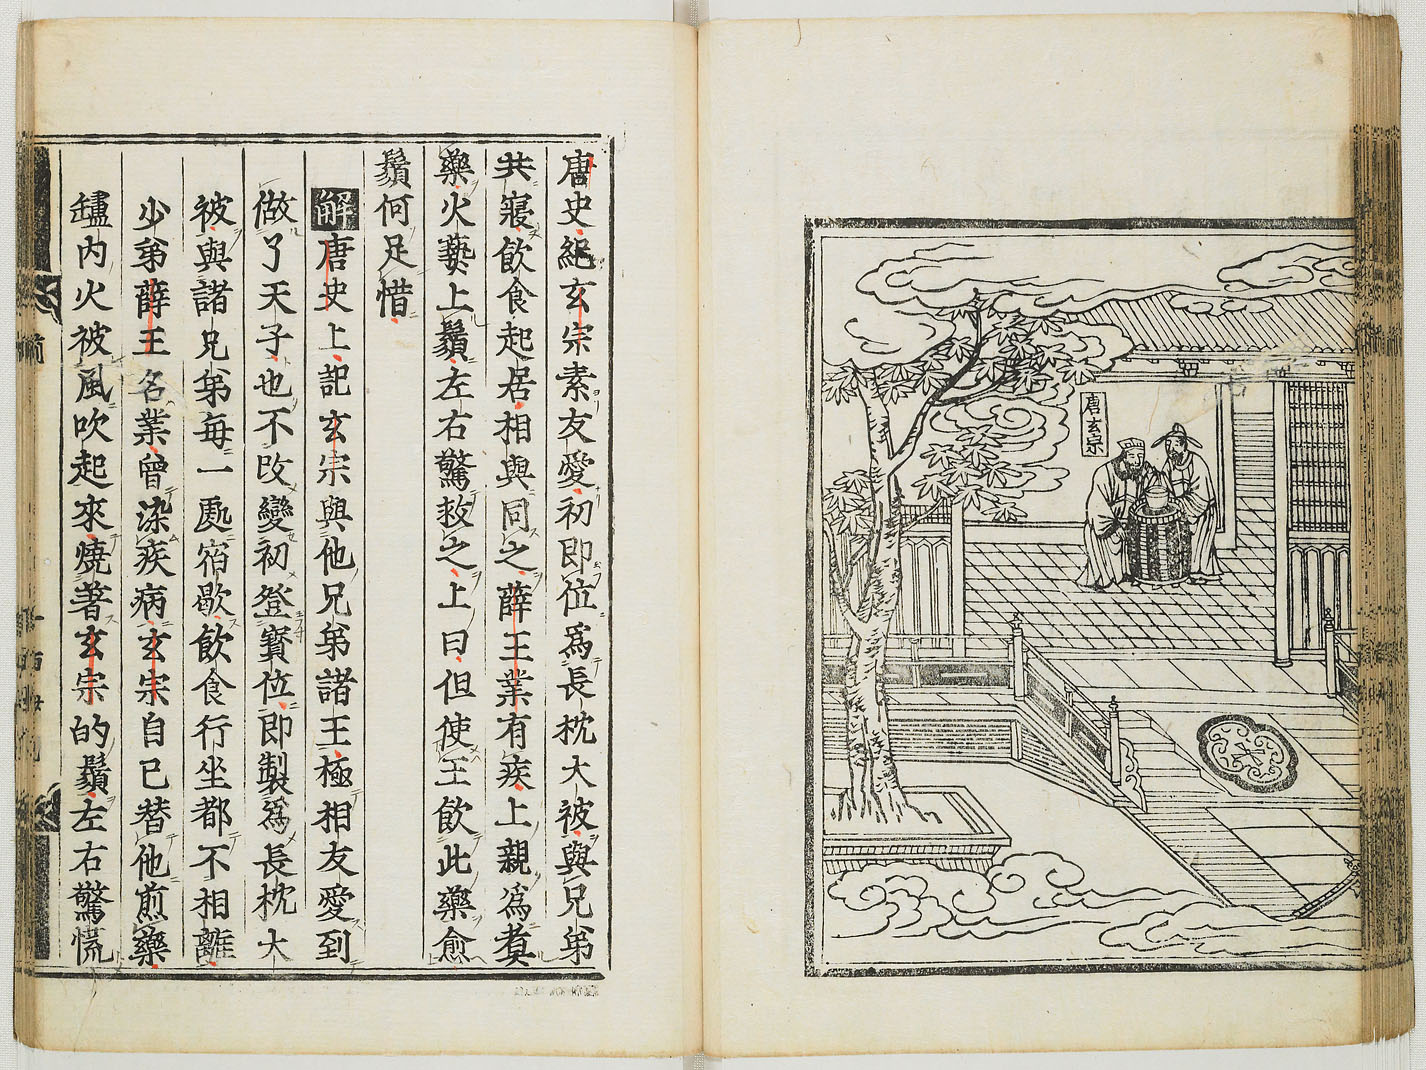 唐玄宗
唐史紀玄宗素友愛初即位爲長枕大被與兄弟
共寢飲食起居相與同之薛王業有疾上親爲煑
藥火爇上鬚左右驚救之上曰但使王飲此藥愈
鬚何足惜
解唐史上記玄宗與他兄弟諸王極相友愛到
做了天子也不改變初登寳位即製爲長枕大
被與諸兄弟每一處宿歇飲食行坐都不相離
少弟薛王名業曾染疾病玄宗自已替他煎藥
罏內火被風吹起來燒著玄宗的鬚左右驚慌